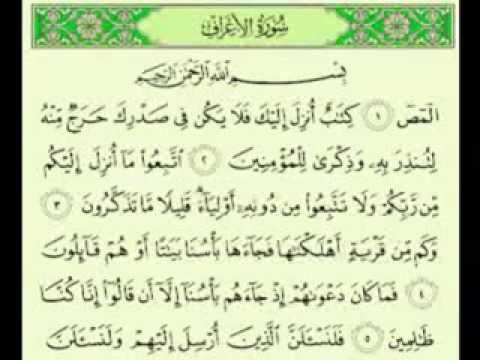 سُورَةُ الأَعْرَافِ
بِسْمِ اللَّهِ الرَّحْمَٰنِ الرَّحِيمِ
الٓمٓصٓ ١ كِتَٰبٌ أُنزِلَ إِلَيْكَ فَلَا يَكُن فِى صَدْرِكَ حَرَجٌ مِّنْهُ
لِتُنذِرَ بِهِۦ وَذِكْرَىٰ لِلْمُؤْمِنِينَ ٢ ٱتَّبِعُوا۟ مَآ أُنزِلَ إِلَيْكُم
مِّن رَّبِّكُمْ وَلَا تَتَّبِعُوا۟ مِن دُونِهِۦٓ أَوْلِيَآءَ ۗ قَلِيلًا مَّا تَذَكَّرُونَ ٣
وَكَم مِّن قَرْيَةٍ أَهْلَكْنَٰهَا فَجَآءَهَا بَأْسُنَا بَيَٰتًا أَوْ هُمْ قَآئِلُونَ
٤ فَمَا كَانَ دَعْوَىٰهُمْ إِذْ جَآءَهُم بَأْسُنَآ إِلَّآ أَن قَالُوٓا۟ إِنَّا كُنَّا
ظَٰلِمِينَ ٥ فَلَنَسْـَٔلَنَّ ٱلَّذِينَ أُرْسِلَ إِلَيْهِمْ وَلَنَسْـَٔلَنَّ